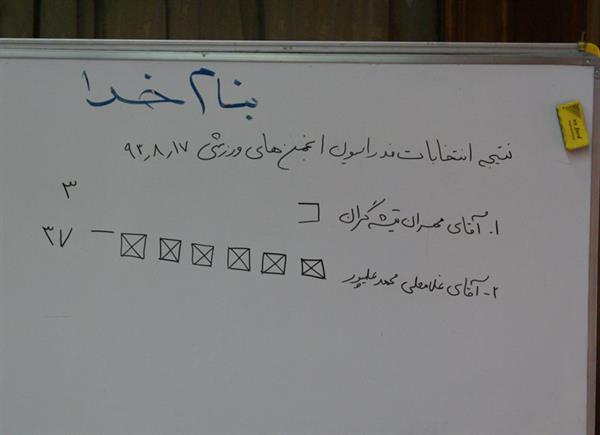 بنام خدا
نتیجه انتخابات فدراسیون انجمن‌های ورزشی ۹۲٫۸٫۱۷
۱. آقای مهران تیشه‌گران ۳
۲- آقای غلامعلی محمدعلیپور ۳۷